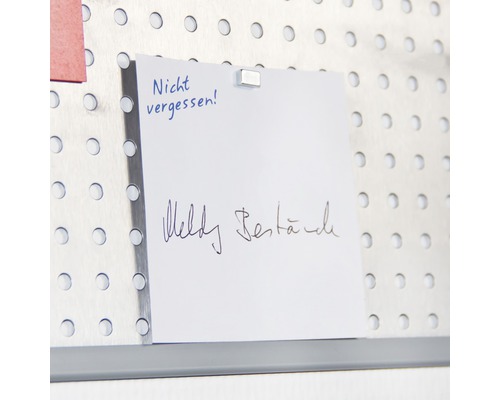 Nicht
vergessen!
Meldg Bestände